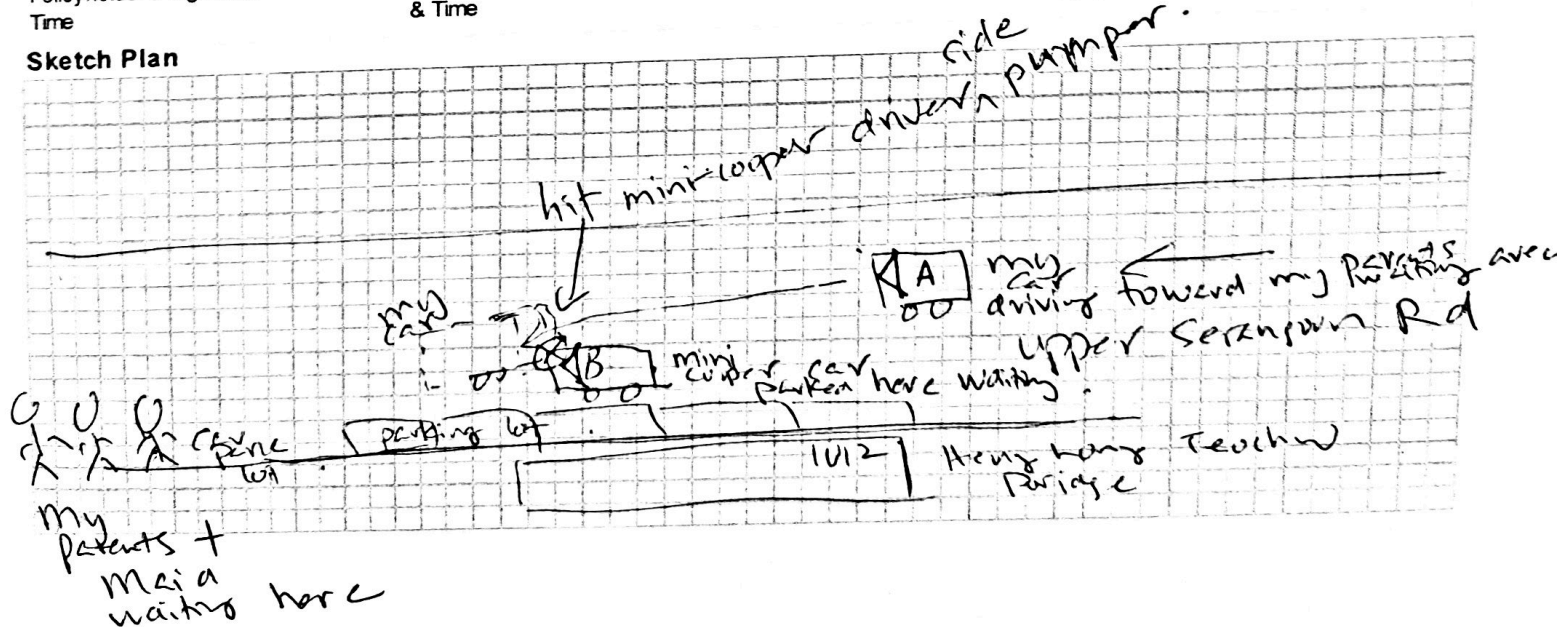 Time
& Time
Sketch Plan
side
hit mini-cooper driver pumper.
A
my car
driving toward my parents waiting area
Upper Serangoon Rd
my car
B
mini cooper car
parken here waiting.
parking lot
1012
Heng Long Teochew
Porridge
my
parents +
maid
waiting here